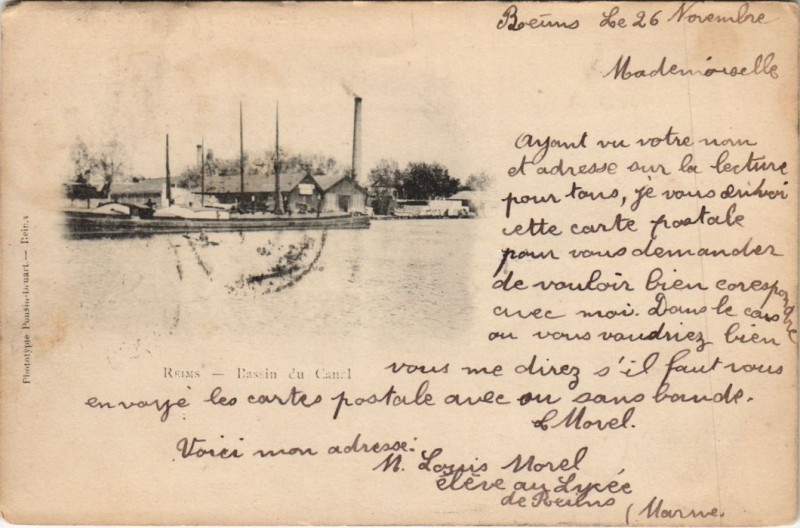 Reims Le 26 Novembre
Mademoiselle
Ayant vu votre nom
et adresse sur la lecture
pour tous, je vous envoi
cette carte postale
pour vous demander
de vouloir bien corespondre
avec moi. Dans le cas
ou vous voudriez bien
vous me direz s'il faut vous
envoyé les cartes postale avec ou sans bande.
L Morel.
Voici mon adresse:
M. Louis Morel
élève au Lycée
de Reims
(Marne.
REIMS — Bassin du Canal
Phototypie Ponsin-Druart. — Reims